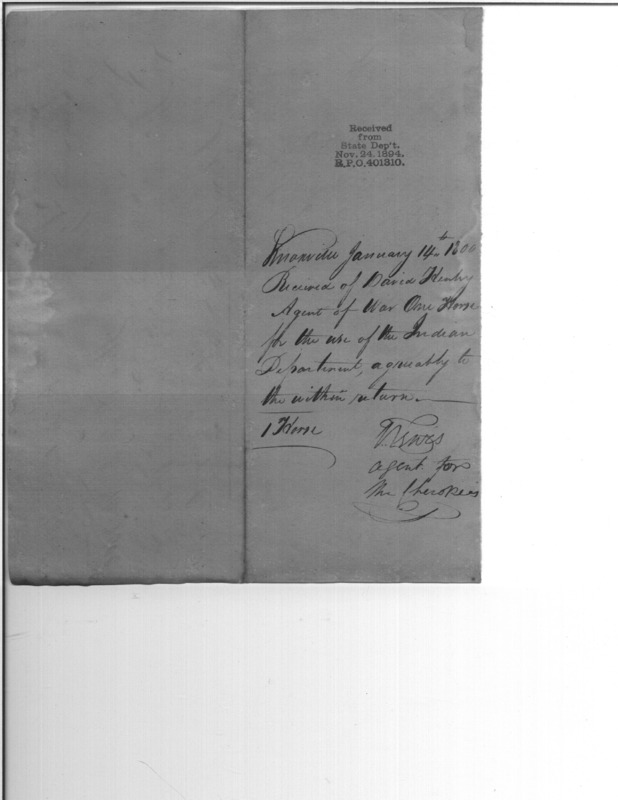 Received
from
State Dep't.
Nov. 24. 1894.
R.P.O. 401310.
Knoxville January 14th 1800
Received of David Henley
Agent of War One Horse
for the use of the Indian
Department, agreeably to
the within return.
1 Horse
T. Lewis
agent for
the Cherokees